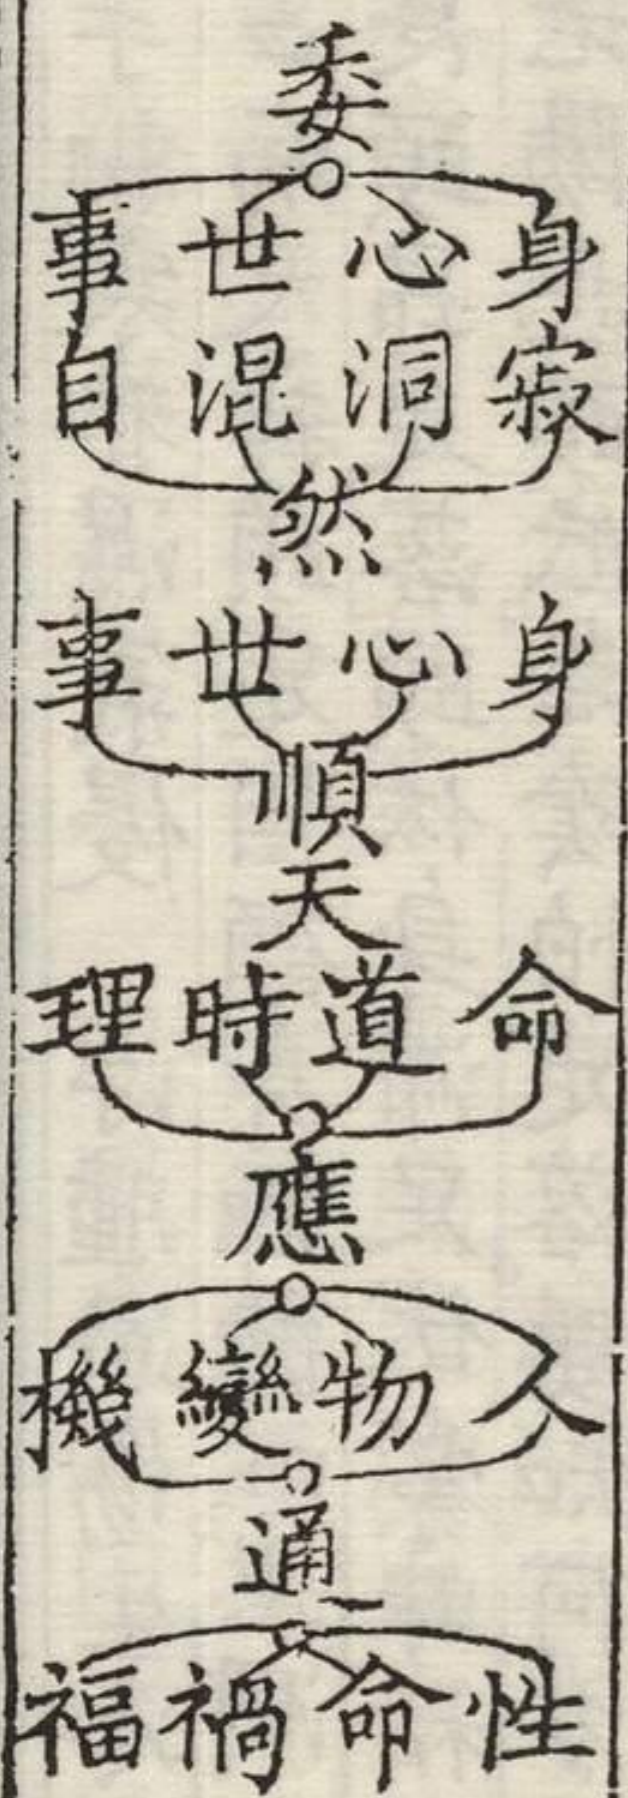 委
身心世事
寂洞混自
然
身心世事
順
天
命道時理
應
人物變機
通
性命禍福